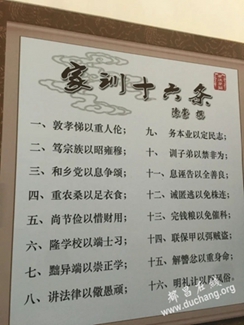 家训十六条
一、敦孝悌以重人伦;
二、笃宗族以昭雍穆;
三、和乡党以息争讼;
四、重农桑以足衣食;
五、尚节俭以惜财用;
六、隆学校以端士习;
七、黜异端以崇正学;
八、讲法律以儆愚顽;
九、务本业以定民志;
十、训子弟以禁非为;
十一、息诬告以全善良;
十二、诫匿逃以免株连;
十三、完钱粮以免催科;
十四、联保甲以弭贼盗;
十五、解讐忿以重身命;
十六、明礼让以厚风俗。
都昌在线
www.duchang.org